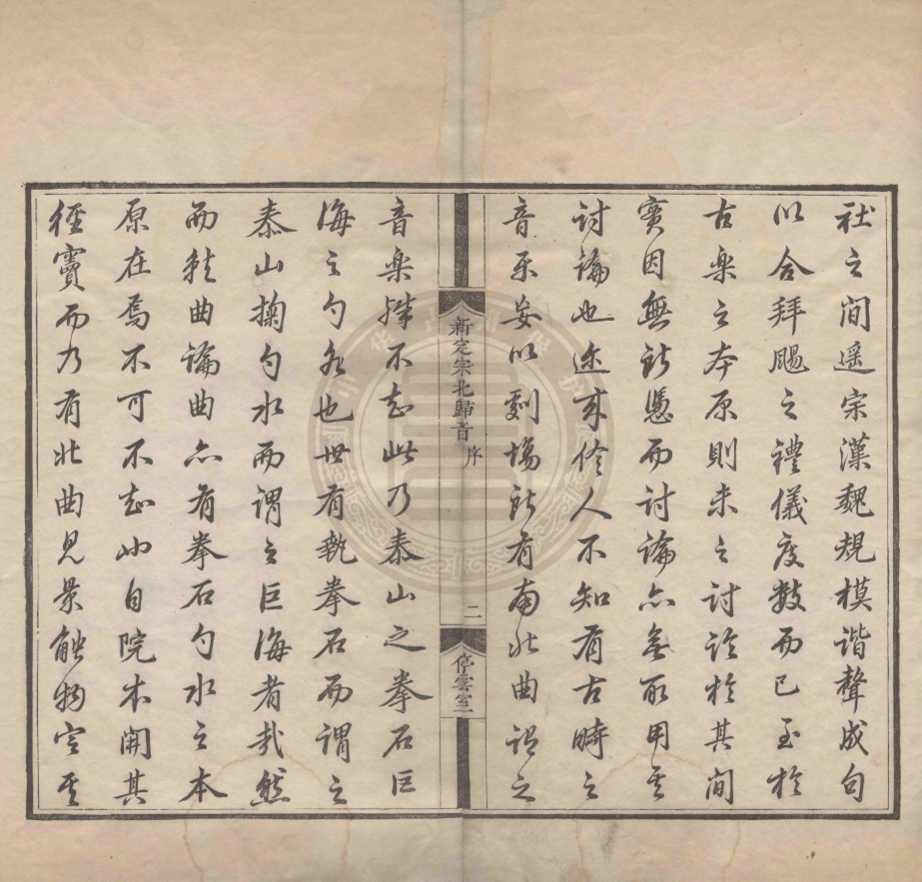 社之間遥宗漢魏規模谐聲成句
以合拜颺之禮儀度数而已至於
古楽之本原則未之討論於其間
實因無所憑而討論亦無所用其
討論也迩来伶人不知有古時之
音乐妄以劇場所有南北曲謂之
新定宗北歸音 序
二
停雲室
音楽殊不知此乃泰山之拳石巨
海之勺水也世有執拳石而謂之
泰山掬勺水而謂之巨海者哉然
而就曲論曲亦有拳石勺水之本
原在焉不可不知也自院本開其
徑竇而乃有北曲見景触物定其